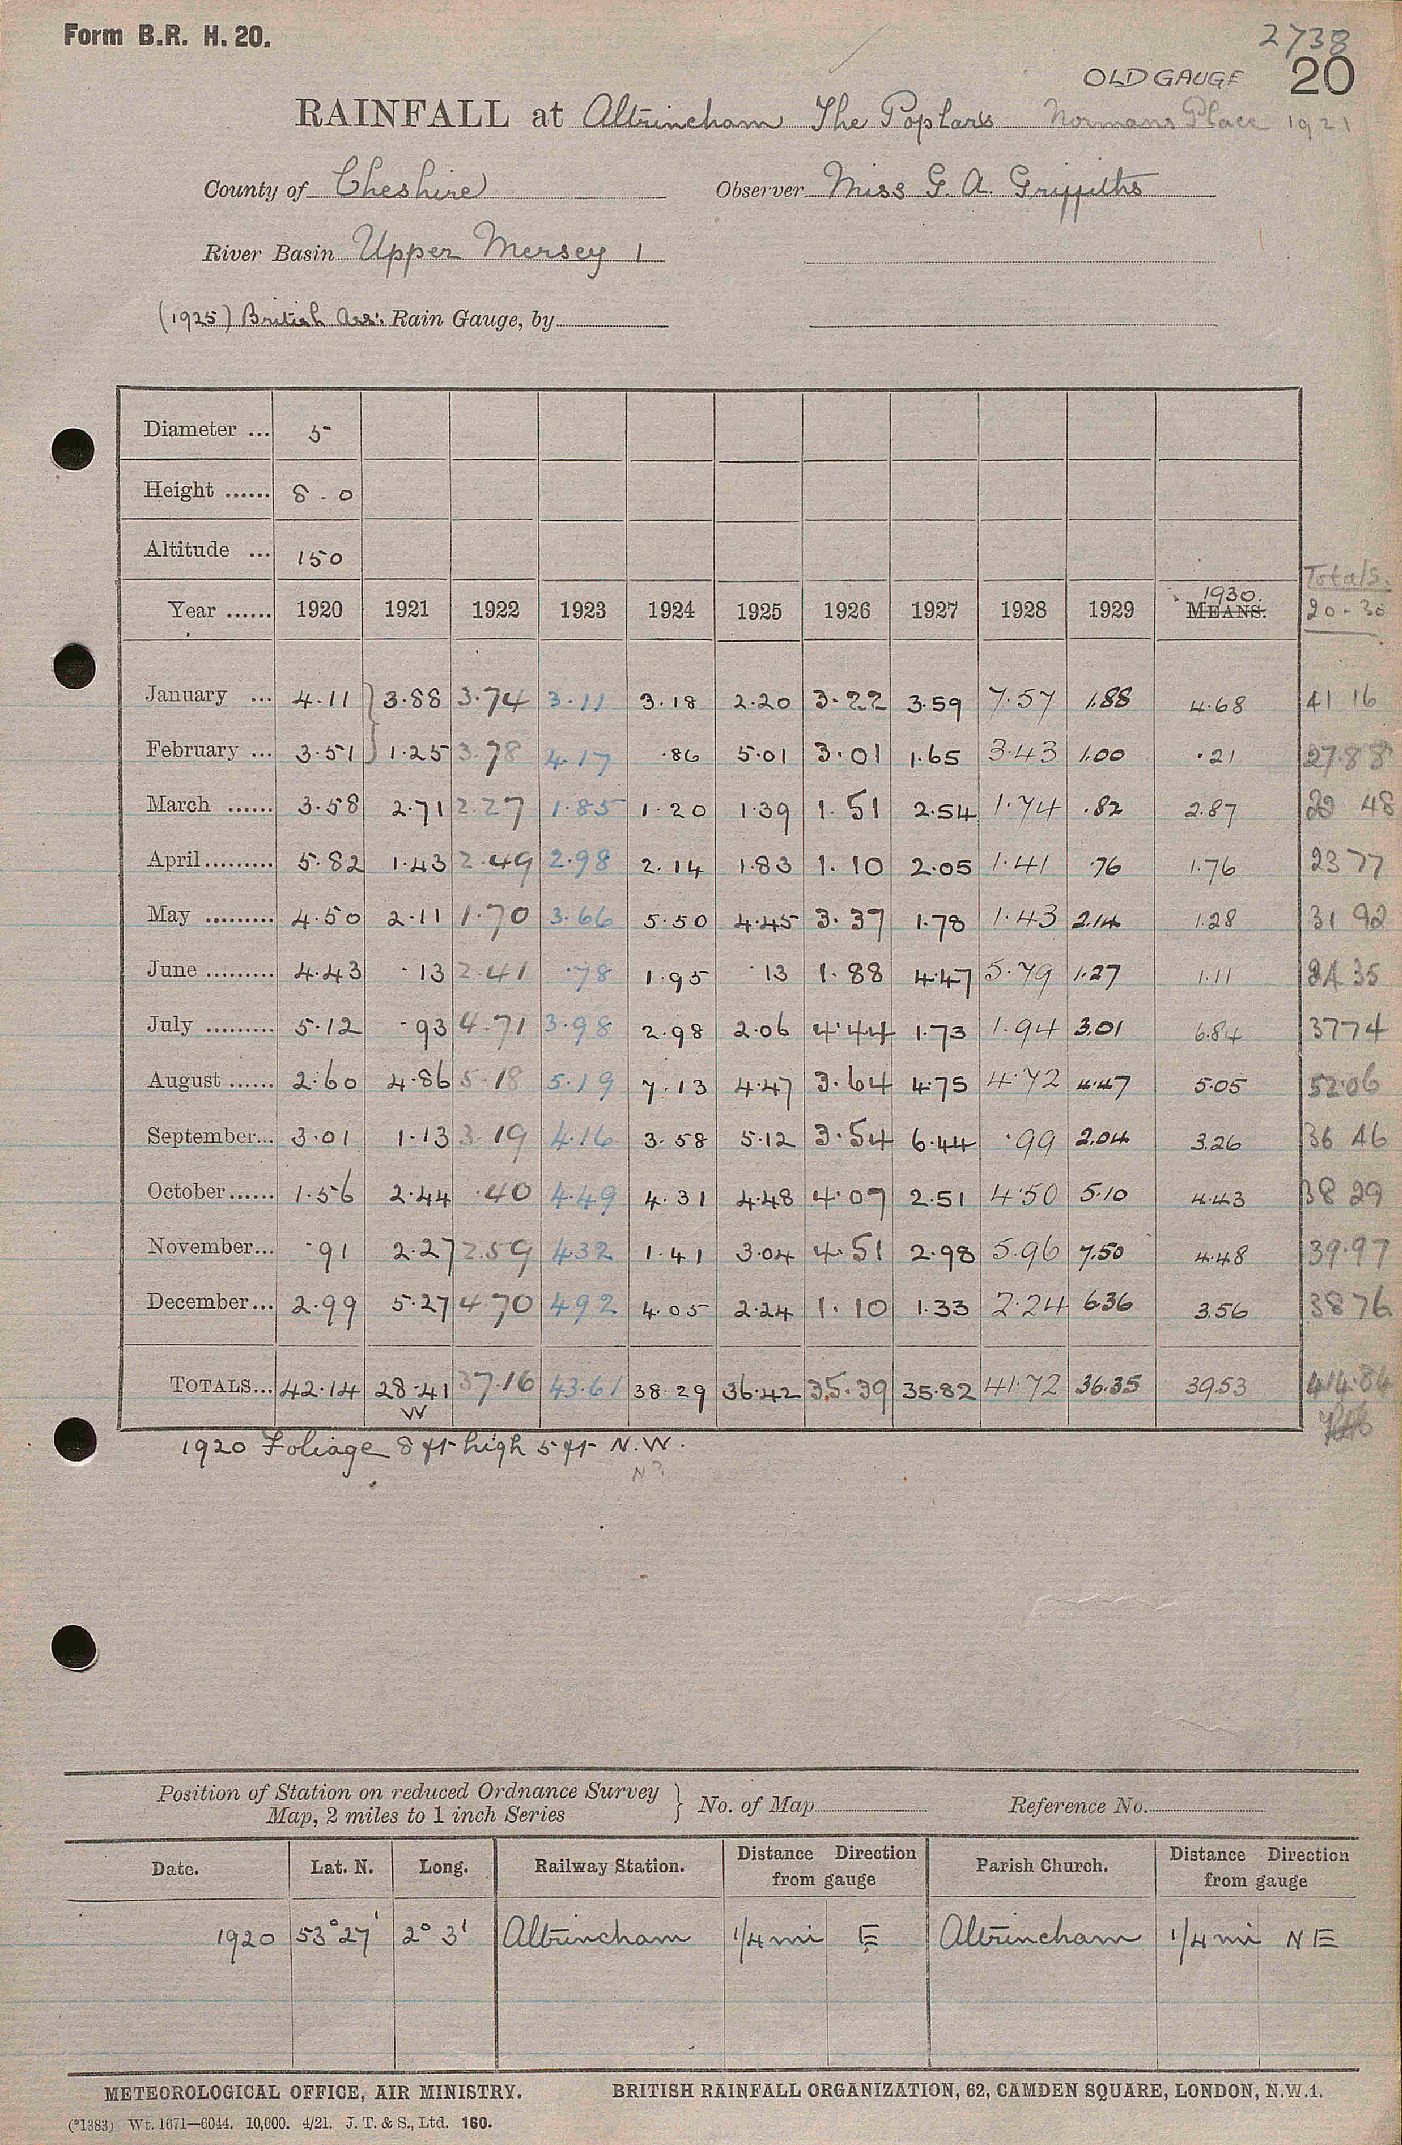 Form B.R. H. 20.
2738
OLD GAUGE 20
RAINFALL at Altrincham The Poplars Normans Place 1921
County of Cheshire Observer Miss G. A. Griffiths
River Basin Upper Mersey 1
(1925) British Ass: Rain Gauge, by
Diameter ... 5
Height ...... 8 - 0
Altitude ... 150
Totals.
Year ...... 1920 1921 1922 1923 1924 1925 1926 1927 1928 1929 1930. MEANS. 20-30
January ... 4.11 3.88 3.74 3.11 3.18 2.20 3.22 3.59 7.57 1.88 4.68 41 16
February ... 3.51 1.25 3.78 4.17 .86 5.01 3.01 1.65 3.43 1.00 .21 27.88
March ...... 3.58 2.71 2.27 1.85 1.20 1.39 1.51 2.54 1.74 .82 2.87 22 48
April ......... 5.82 1.43 2.49 2.98 2.14 1.83 1.10 2.05 1.41 .76 1.76 23 77
May ......... 4.50 2.11 1.70 3.66 5.50 4.45 3.37 1.78 1.43 2.14 1.28 31 92
June ......... 4.43 .13 2.41 .78 1.95 .13 1.88 4.47 5.79 1.27 1.11 24 35
July ......... 5.12 .93 4.71 3.98 2.98 2.06 4.44 1.73 1.94 3.01 6.84 37 74
August ...... 2.60 4.86 5.18 5.19 7.13 4.47 3.64 4.75 4.72 4.47 5.05 52.06
September... 3.01 1.13 3.19 4.16 3.58 5.12 3.54 6.44 .99 2.04 3.26 36 46
October...... 1.56 2.44 .40 4.49 4.31 4.48 4.07 2.51 4.50 5.10 4.43 38 29
November... .91 2.27 2.59 4.32 1.41 3.04 4.51 2.98 5.96 7.50 4.48 39.97
December... 2.99 5.27 4.70 4.92 4.05 2.24 1.10 1.33 2.24 6.36 3.56 38 76
TOTALS... 42.14 28.41 37.16 43.61 38.29 36.42 35.39 35.82 41.72 36.35 39.53 414.84
W
1920 Foliage 8 ft high 5 ft N.W.
N?
Position of Station on reduced Ordnance Survey
Map, 2 miles to 1 inch Series } No. of Map Reference No.
Date. Lat. N. Long. Railway Station. Distance Direction from gauge Parish Church. Distance Direction from gauge
1920 53° 27' 2° 3' Altrincham 1/4 mi E Altrincham 1/4 mi NE
METEOROLOGICAL OFFICE, AIR MINISTRY. BRITISH RAINFALL ORGANIZATION, 62, CAMDEN SQUARE, LONDON, N.W.1.
(*1383) Wt. 1671—6044. 10,000. 4/21. J. T. & S., Ltd. 160.